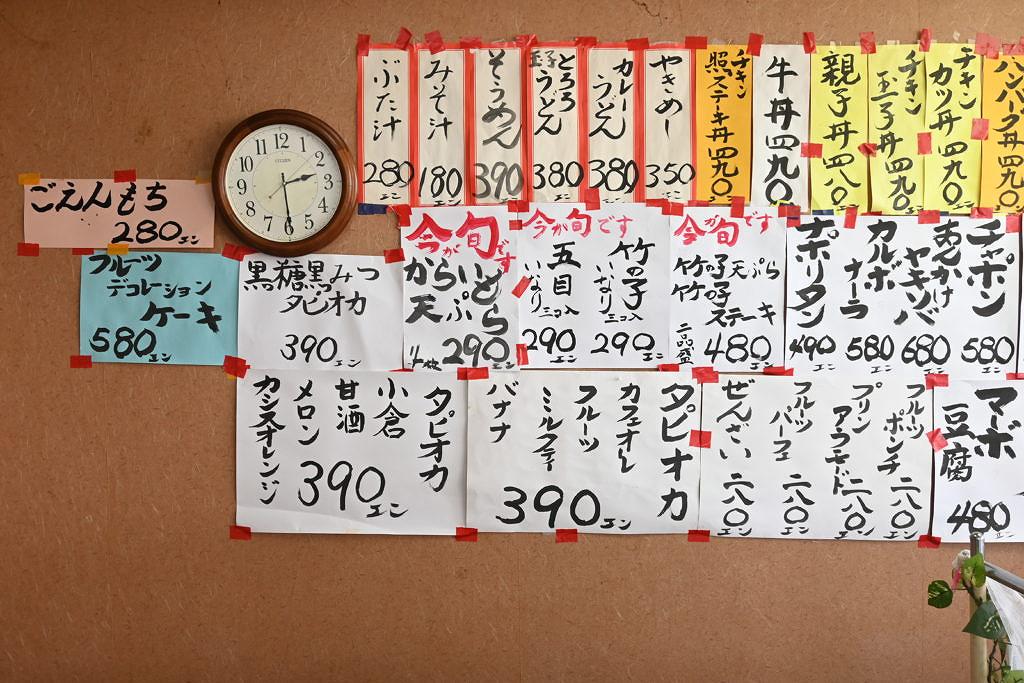 ぶた汁
280エン
みそ汁
180エン
そうめん
390エン
玉子とろろうどん
380エン
カレーうどん
380エン
やきめし
350エン
チキン
照ステーキ丼四九〇
牛丼四九〇
親子丼四八〇
チキン
玉子丼四九〇
チキン
カツ丼四九〇
ハンバーグ丼四九〇
ごえんもち
280エン
12
1
2
3
4
5
6
7
8
9
10
11
CITIZEN
フルーツ
デコレーション
ケーキ
580エン
黒糖黒みつ
タピオカ
390エン
今が旬です
からいとど
天ぷら
290エン
今が旬です
竹の子
いなり三コ入
290エン
五目
いなり三コ入
290エン
今が旬です
竹の子天ぷら
竹の子
ステーキ
二品盛
480エン
チャポン
580エン
あんかけ
ヤキソバ
680エン
カルボ
ナーラ
580エン
ナポリタン
490エン
タピオカ
小倉
甘酒
メロン
カシスオレンジ
390エン
タピオカ
カフェオレ
フルーツ
ミルクティ
バナナ
390エン
フルーツ
ポンチ二八〇エン
プリン
アラモード二八〇エン
フルーツ
パーフェ二八〇エン
ぜんざい二八〇エン
マーボ
豆腐
480エン